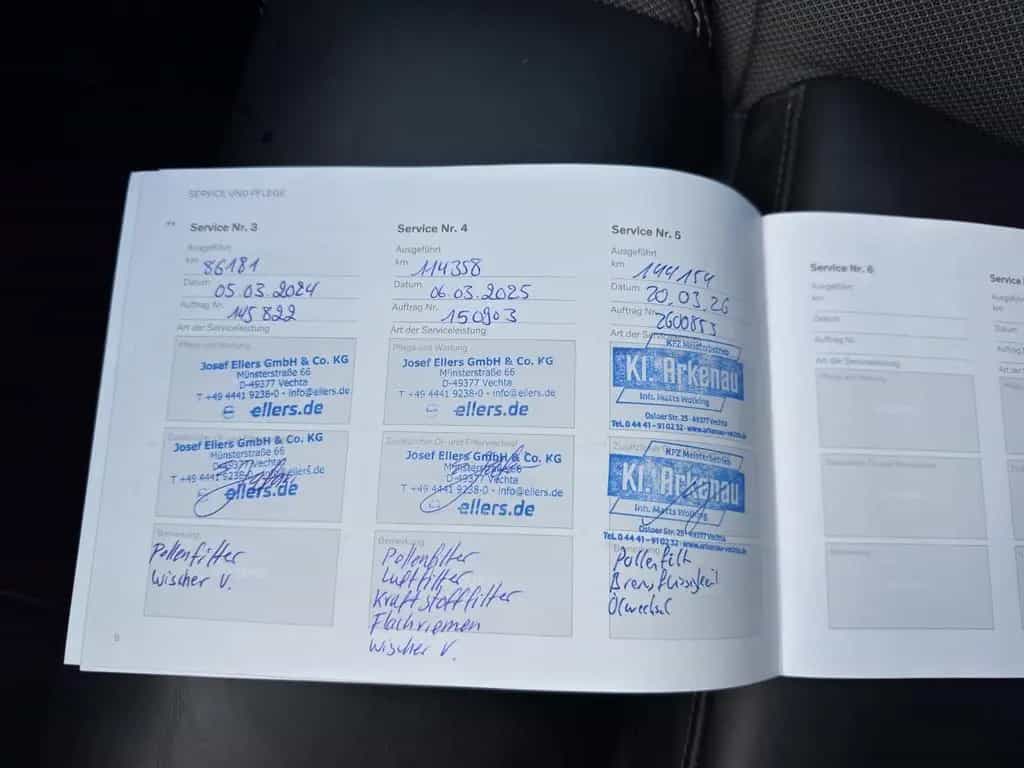 SERVICE UND PFLEGE
Service Nr. 3
Ausgeführt
km 86181
Datum 05.03.2024
Auftrag Nr. 145822
Art der Serviceleistung
Pflege und Wartung
Josef Ellers GmbH & Co. KG
Münsterstraße 66
D-49377 Vechta
T +49 4441 9238-0 - info@ellers.de
ellers.de
Josef Ellers GmbH & Co. KG
Münsterstraße 66
D-49377 Vechta
T +49 4441 9238-0
ellers.de
ellers.de
Bemerkung
Pollenfilter
Wischer V.
Service Nr. 4
Ausgeführt
km 114358
Datum 06.03.2025
Auftrag Nr. 150903
Art der Serviceleistung
Pflege und Wartung
Josef Ellers GmbH & Co. KG
Münsterstraße 66
D-49377 Vechta
T +49 4441 9238-0 - info@ellers.de
ellers.de
Zusätzlicher Öl- und Filterwechsel
Josef Ellers GmbH & Co. KG
Münsterstraße 66
D-49377 Vechta
T +49 4441 9238-0 - info@ellers.de
ellers.de
Bemerkung
Pollenfilter
Luftfilter
Kraftstofffilter
Flachriemen
Wischer V.
Service Nr. 5
Ausgeführt
km 144154
Datum 20.03.26
Auftrag Nr. 2600853
Art der
KFZ Meisterbetrieb
Kl. Arkenau
Inh. Matts Wolking
Osloer Str. 25 · 49377 Vechta
Tel. 0 44 41 - 91 02 32 · www.arkenau-vechta.de
KFZ Meisterbetrieb
Kl. Arkenau
Inh. Matts Wolking
Osloer Str. 25 · 49377 Vechta
Tel. 0 44 41 - 91 02 32 · www.arkenau-vechta.de
Pollenfilt
Bremsflüssigkeit
Ölwechsel
Service Nr. 6
Ausgeführt
km
Datum
Auftrag Nr.
Art der Serviceleistung
Service